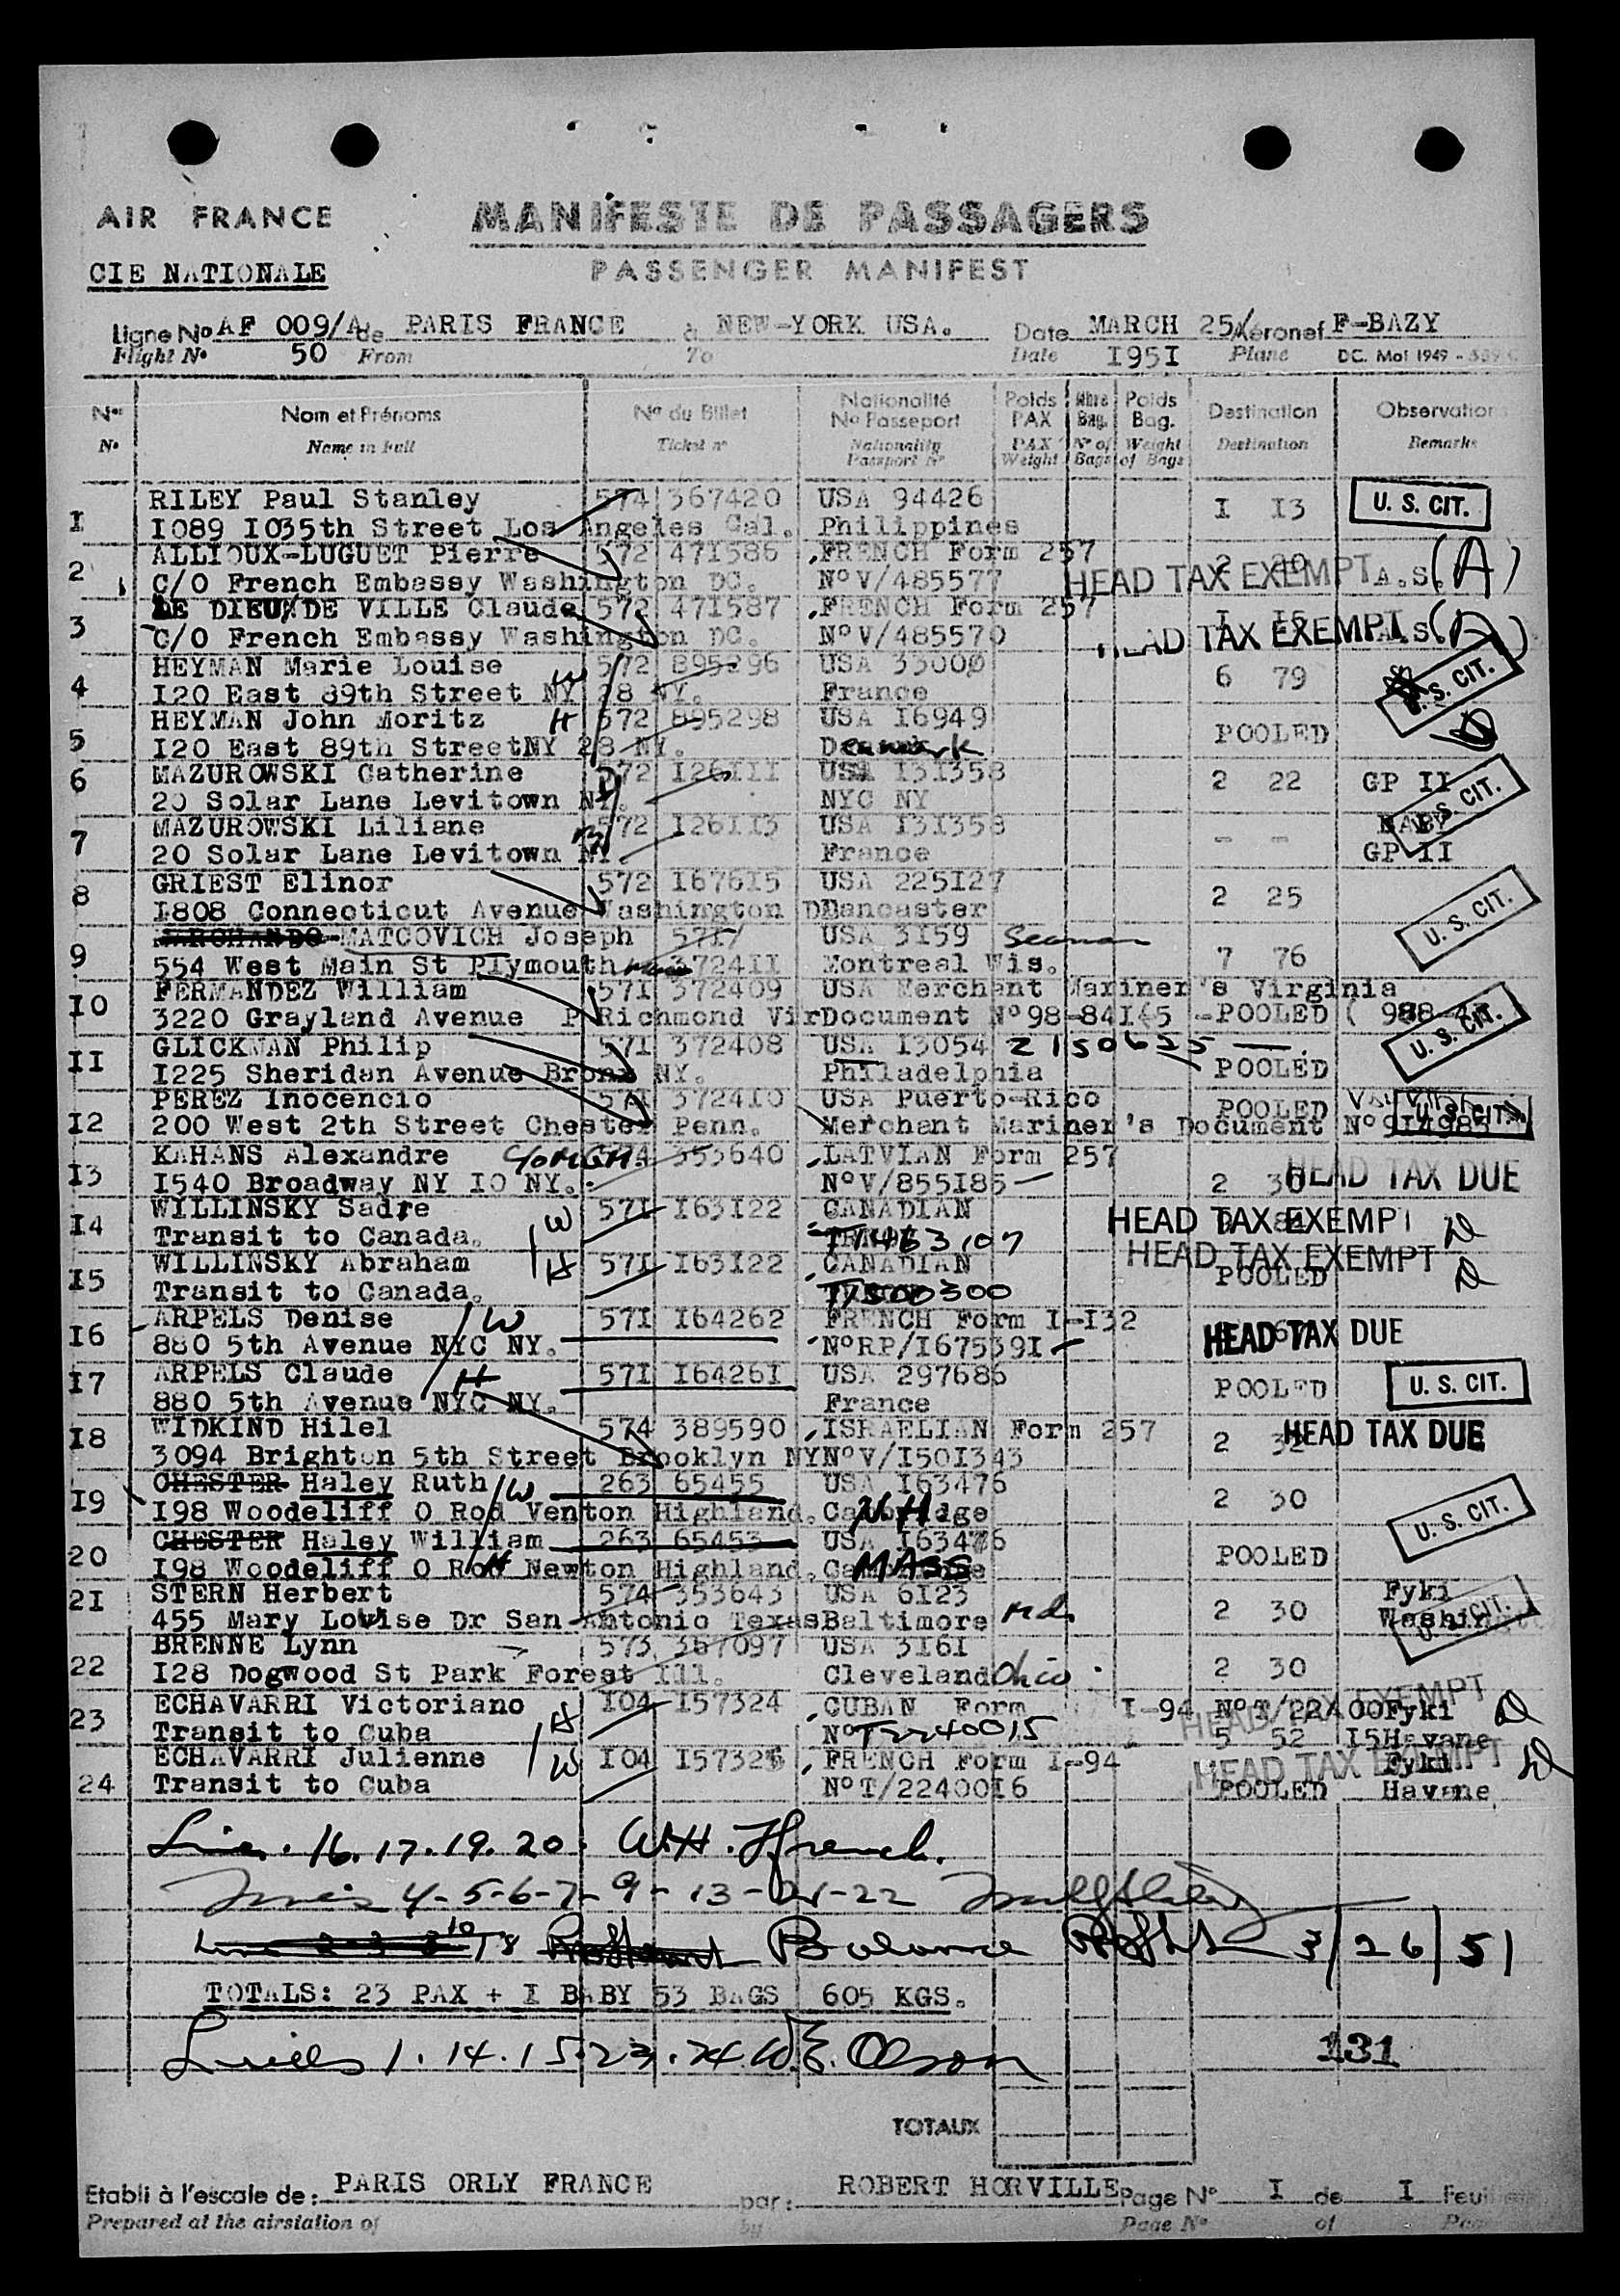 AIR FRANCE MANIFESTE DE PASSAGERS
CIE NATIONALE PASSENGER MANIFEST
Ligne No AF 009/A de PARIS FRANCE à NEW-YORK USA. Date MARCH 25/ Aéronef F-BAZY
Flight No 50 From To Date I95I Plane DC. Mai 1949
Nos Nom et Prénoms No du Billet Nationalité No Passeport Poids PAX Nbre Bag. Poids Bag. Destination Observations
No Name in full Ticket no Nationality Passport No PAX Weight No of Bags Weight of Bags Destination Remarks
RILEY Paul Stanley 574 367420 USA 94426 I I3 U. S. CIT.
I I089 I035th Street Los Angeles Cal. Philippines
ALLIOUX-LUGUET Pierre 572 47I586 FRENCH Form 257 2 20
2 C/O French Embassy Washington DC. No V/485577 HEAD TAX EXEMPT A.S. (A)
LE DIEU/DE VILLE Claude 572 47I587 FRENCH Form 257 I I5
3 C/O French Embassy Washington DC. No V/485570 HEAD TAX EXEMPT A.S.
HEYMAN Marie Louise W 572 895296 USA 33000 6 79 U. S. CIT.
4 I20 East 89th Street NY 28 NY. France
HEYMAN John Moritz H 572 895298 USA I6949 POOLED
5 I20 East 89th StreetNY 28 NY. Denmark
6 MAZUROWSKI Catherine 572 I26III USA I3I358 2 22 GP II U. S. CIT.
20 Solar Lane Levitown NY. NYC NY
MAZUROWSKI Liliane 572 I26II3 USA I3I358 - - BABY
7 20 Solar Lane Levitown NY. France GP II
8 GRIEST Elinor 572 I676I5 USA 225I27 2 25 U. S. CIT.
I808 Connecticut Avenue Washington DC Lancaster
MATCOVICH Joseph 571/ USA 3I59 Seaman
9 554 West Main St Plymouth 3724II Montreal Wis. 7 76
FERMANDEZ William 57I 372409 USA Merchant Mariner's Virginia
I0 3220 Grayland Avenue Richmond Vir Document No 98-84I(5 -POOLED U. S. CIT.
GLICKMAN Philip 57I 372408 USA I3054 2150625
II I225 Sheridan Avenue Bronx NY. Philadelphia POOLED
PEREZ Inocencio 57I 3724I0 USA Puerto-Rico POOLED U. S. CIT.
I2 200 West 2th Street Chester Penn. Merchant Mariner's Document No
KAHANS Alexandre C/o MGM. 574 353640 LATVIAN Form 257
I3 I540 Broadway NY I0 NY. No V/855I85 2 30 HEAD TAX DUE
WILLINSKY Sadre W 57I I63I22 CANADIAN HEAD TAX EXEMPT
I4 Transit to Canada. T1463107
WILLINSKY Abraham H 57I I63I22 CANADIAN HEAD TAX EXEMPT
I5 Transit to Canada. POOLED
ARPELS Denise W 57I I64262 FRENCH Form I-I32
I6 880 5th Avenue NYC NY. No RP/I67539I HEAD TAX DUE
ARPELS Claude H 57I I6426I USA 297686
I7 880 5th Avenue NYC NY. France POOLED U. S. CIT.
WIDKIND Hilel 574 389590 ISRAELIAN Form 257
I8 3094 Brighton 5th Street Brooklyn NY No V/I50I343 2 32 HEAD TAX DUE
CHESTER Haley Ruth W 263 65455 USA I63476
I9 I98 Woodeliff O Rod Venton Highland. Cambridge N.H. 2 30 U. S. CIT.
CHESTER Haley William 263 65453 USA I63476
20 I98 Woodeliff O Rod Newton Highland. MASS POOLED
STERN Herbert 574 353643 USA 6I23 Fyki
2I 455 Mary Louise Dr San Antonio Texas Baltimore Md. 2 30 Washington U. S. CIT.
BRENNE Lynn 573 367097 USA 3I6I
22 I28 Dogwood St Park Forest Ill. Cleveland Ohio 2 30
ECHAVARRI Victoriano H I04 I57324 CUBAN Form I-94 No T/22400 Fyki
23 Transit to Cuba No T2240015 5 52 I5 Havane HEAD TAX EXEMPT
ECHAVARRI Julienne W I04 I57325 FRENCH Form I-94 Fyki HEAD TAX EXEMPT
24 Transit to Cuba No T/22400I6 POOLED Havane
Line. 16. 17. 19. 20. W.H. Ffrench.
4-5-6-7-9-13-21-22
Balance 3/26/51
TOTALS: 23 PAX + I BABY 53 BAGS 605 KGS.
Lines 1. 14. 15. 23. 24. W.E. Olson
131
TOTAUX
Etabli à l'escale de: PARIS ORLY FRANCE par: ROBERT HORVILLE Page No I de I
Prepared at the airstation of by Page No of